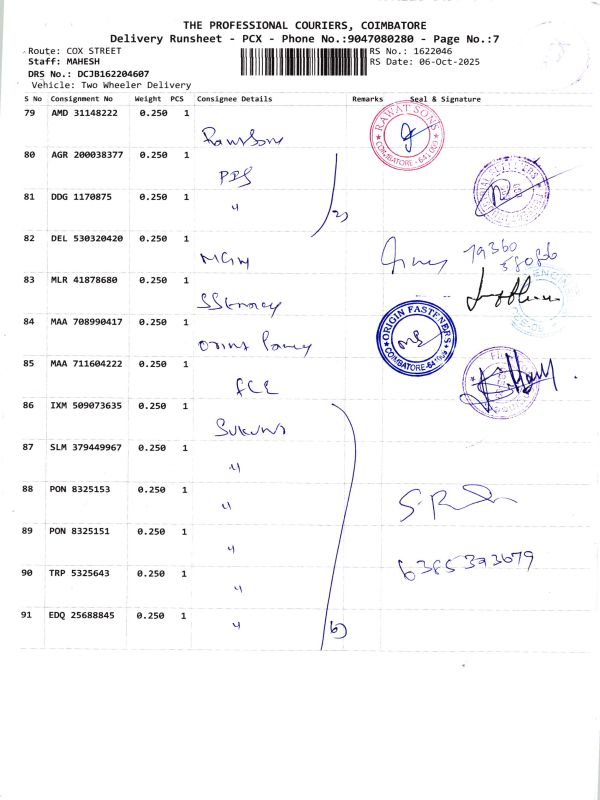 THE PROFESSIONAL COURIERS, COIMBATORE
Delivery Runsheet - PCX - Phone No.:9047080280 - Page No.:7
Route: COX STREET
Staff: MAHESH
DRS No.: DCJB162204607
Vehicle: Two Wheeler Delivery
RS No.: 1622046
RS Date: 06-Oct-2025
S No Consignment No Weight PCS Consignee Details Remarks Seal & Signature
79 AMD 31148222 0.250 1
RAWAT SONS
COIMBATORE - 641
80 AGR 200038377 0.250 1
81 DDG 1170875 0.250 1
〃
2)
82 DEL 530320420 0.250 1
MGM
79360
58086
83 MLR 41878680 0.250 1
84 MAA 708990417 0.250 1
ORIGIN FASTENERS
COIMBATORE
85 MAA 711604222 0.250 1
FCE
86 IXM 509073635 0.250 1
87 SLM 379449967 0.250 1
〃
88 PON 8325153 0.250 1
〃
89 PON 8325151 0.250 1
〃
6385393679
90 TRP 5325643 0.250 1
〃
91 EDQ 25688845 0.250 1
〃
6)